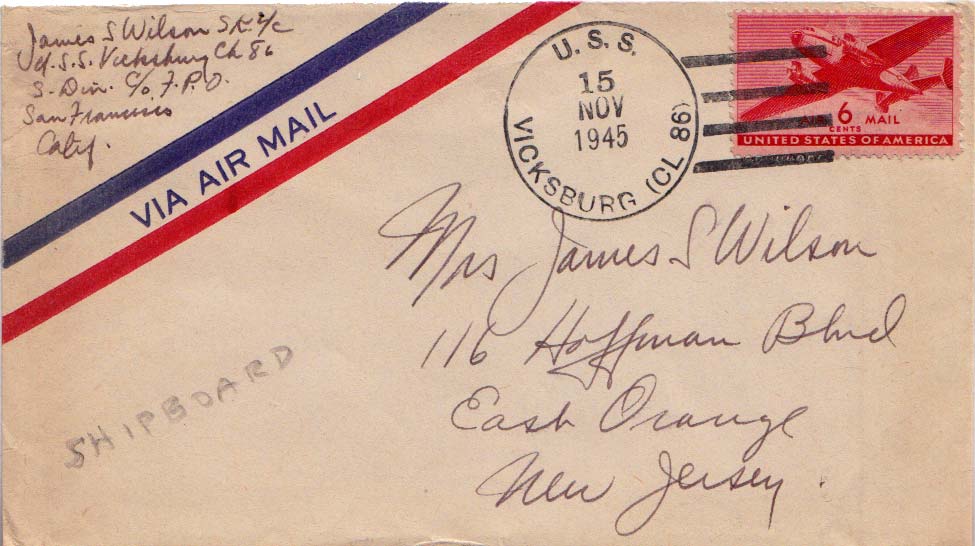 James S Wilson SK 2/c
U.S.S. Vicksburg CL 86
S-Div. C/o F.P.O.
San Francisco
Calif.
VIA AIR MAIL
U. S. S.
15
NOV
1945
VICKSBURG (CL 86)
AIR 6 MAIL
CENTS
UNITED STATES OF AMERICA
Mrs James S Wilson
116 Hoffman Blvd
East Orange
New Jersey.
SHIPBOARD